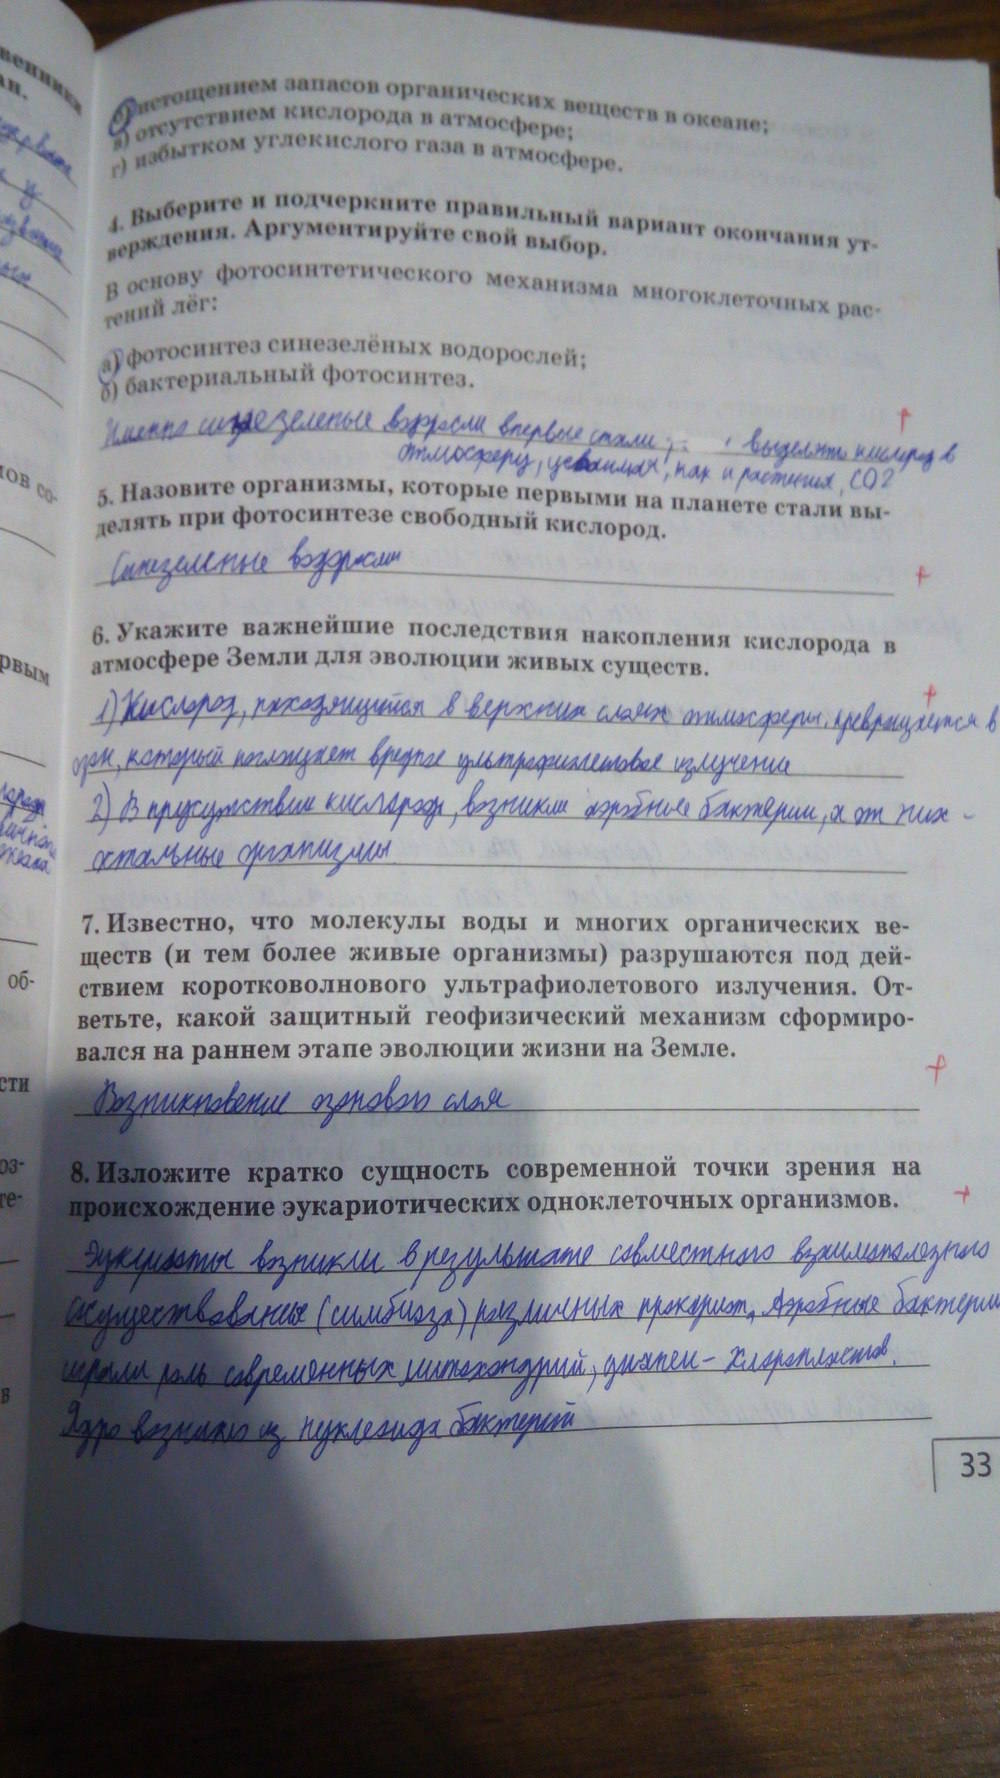 венника
ан.
истощением запасов органических веществ в океане;
в) отсутствием кислорода в атмосфере;
г) избытком углекислого газа в атмосфере.
4. Выберите и подчеркните правильный вариант окончания ут-
верждения. Аргументируйте свой выбор.
В основу фотосинтетического механизма многоклеточных рас-
тений лёг:
а) фотосинтез синезелёных водорослей;
б) бактериальный фотосинтез.
Именно синезеленые водоросли впервые стали выделять кислород в
атмосферу, усваивая, как и растения, CO2
5. Назовите организмы, которые первыми на планете стали вы-
делять при фотосинтезе свободный кислород.
Синезеленые водоросли
6. Укажите важнейшие последствия накопления кислорода в
атмосфере Земли для эволюции живых существ.
1) Кислород, находящийся в верхних слоях атмосферы, превращается в
озон, который поглощает вредное ультрафиолетовое излучение
2) В присутствии кислорода, возникли аэробные бактерии, а от них -
остальные организмы
7. Известно, что молекулы воды и многих органических ве-
ществ (и тем более живые организмы) разрушаются под дей-
ствием коротковолнового ультрафиолетового излучения. От-
ветьте, какой защитный геофизический механизм сформиро-
вался на раннем этапе эволюции жизни на Земле.
Возникновение озонового слоя
8. Изложите кратко сущность современной точки зрения на
происхождение эукариотических одноклеточных организмов.
Эукариоты возникли в результате совместного взаимополезного
существования (симбиоза) различных прокариот. Аэробные бактерии
играли роль современных митохондрий, цианеи - хлоропластов.
Ядро возникло из нуклеоида бактерий
33
мов со-
рвым
об-
сти
оз-
те-
в